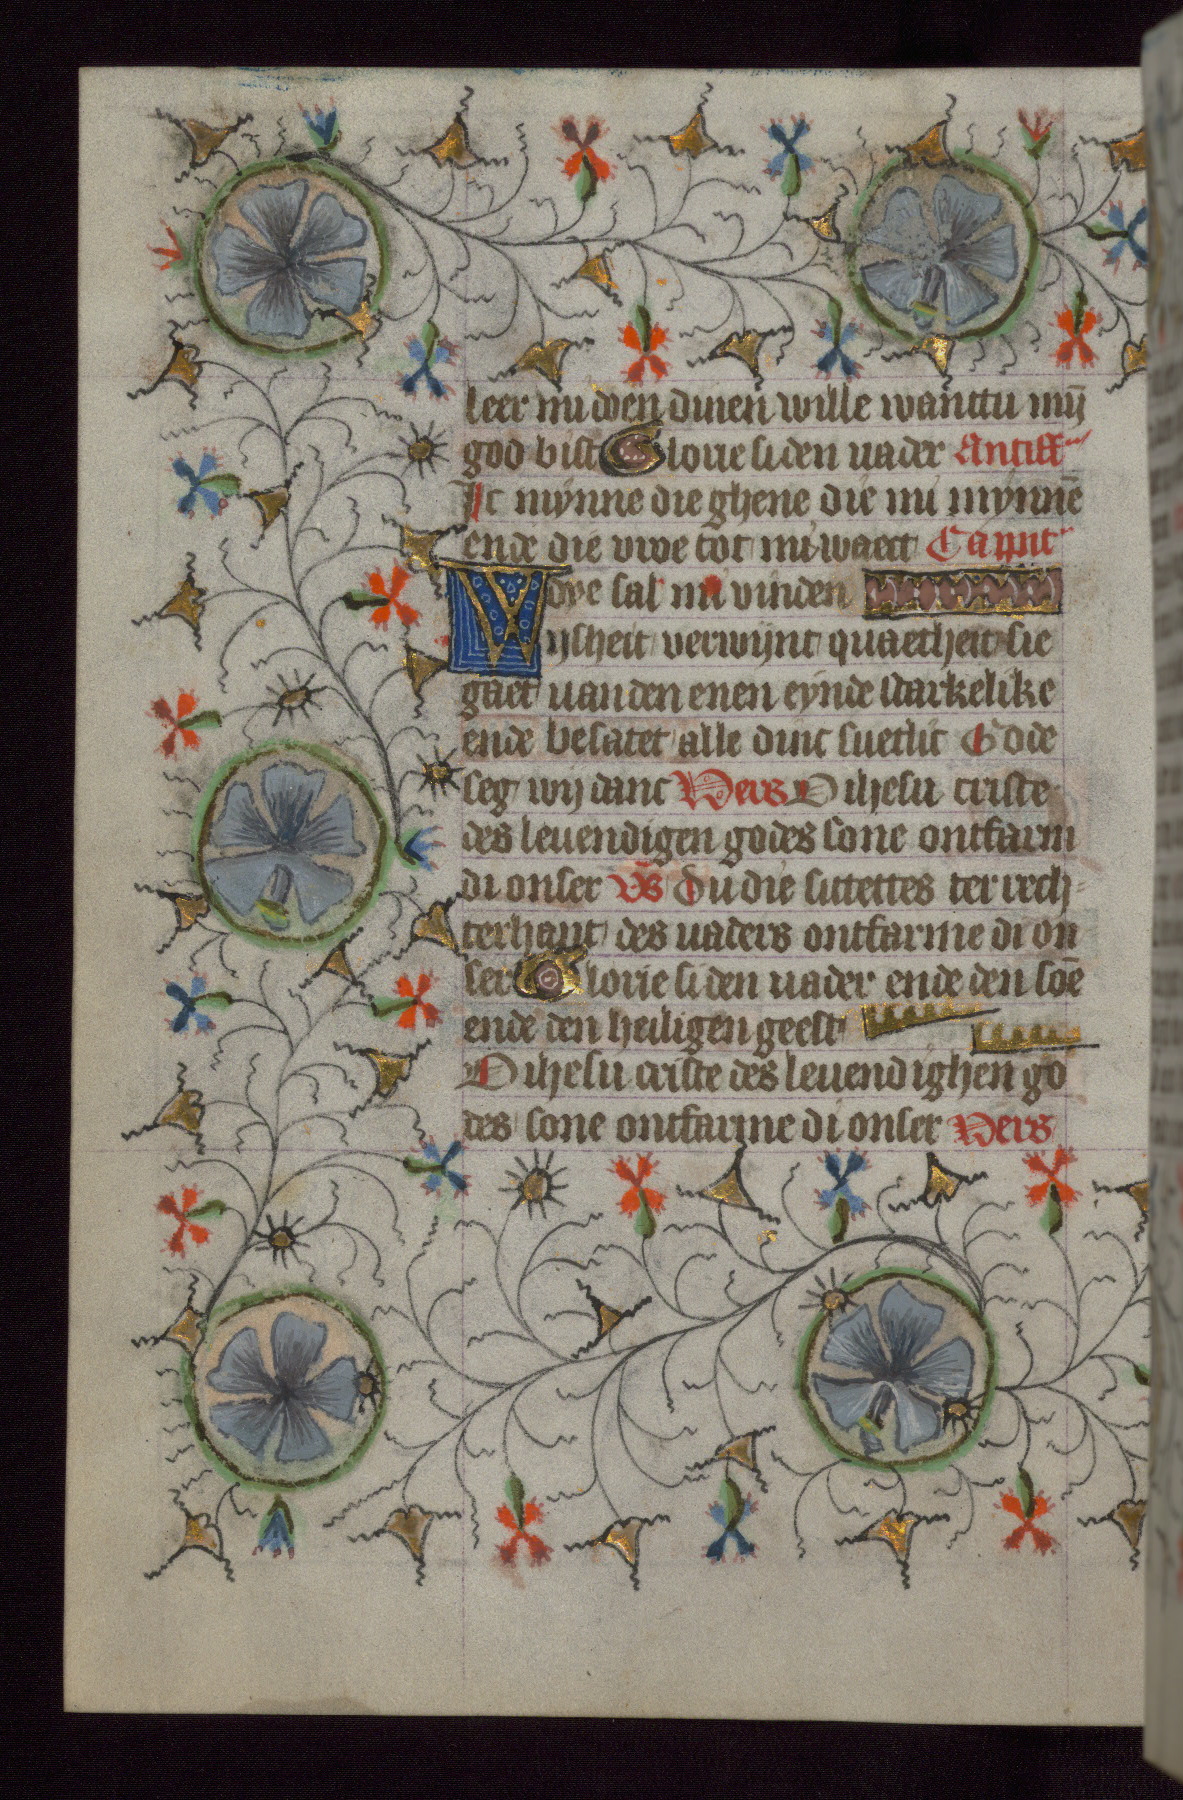 leer mi doen dinen wille wanttu mȳ
god bist Glorie si den uader Antiff
Ic mynne die ghene die mi mynnē
ende die vroe tot mi waect Capitt
doe sal mi vinden
Wijsheit verwijnt quaetheit sie
gaet uanden enen eynde starkelike
ende besatet alle dinc suetlic Gode
seg wij danc Vers O ihesu criste
des leuendigen godes sone ontfarm
di onser Vs̄ Du die sittettes ter rech-
terhant des uaders ontfarme di on
ser Glorie si den uader ende den sōe
ende den heiligen geest
O ihesu criste des leuendighen go
des sone ontfarme di onser Vers